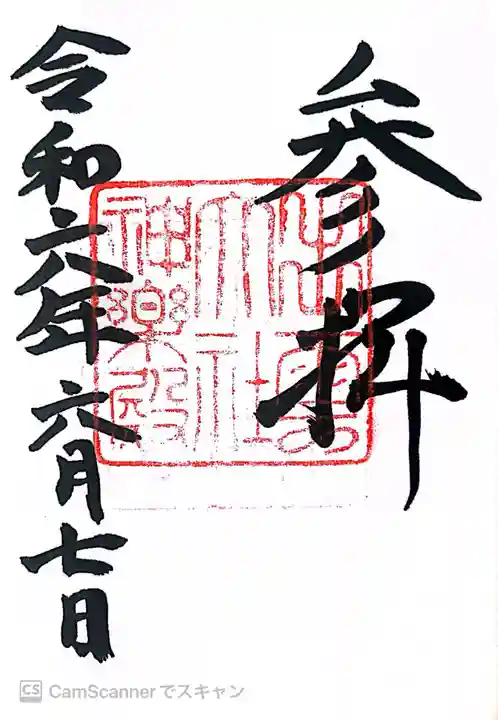 参拝
出雲
大社
神楽殿
令和六年六月七日
CS CamScannerでスキャン